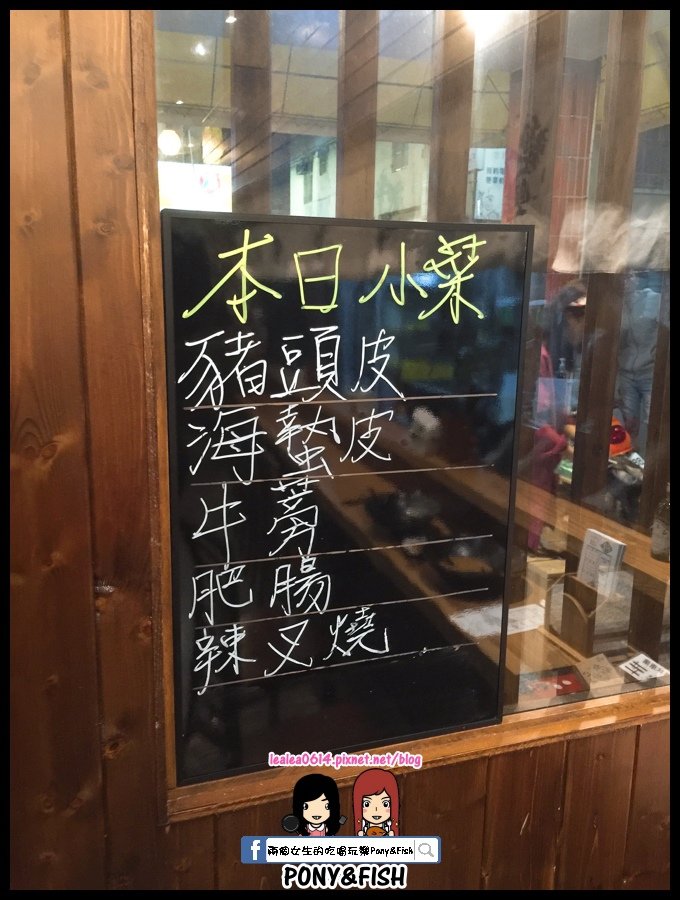 本日小菜
豬頭皮
海蜇皮
牛蒡
肥腸
辣叉燒
lealea0614.pixnet.net/blog
兩個女生的吃喝玩樂Pony&Fish
PONY&FISH